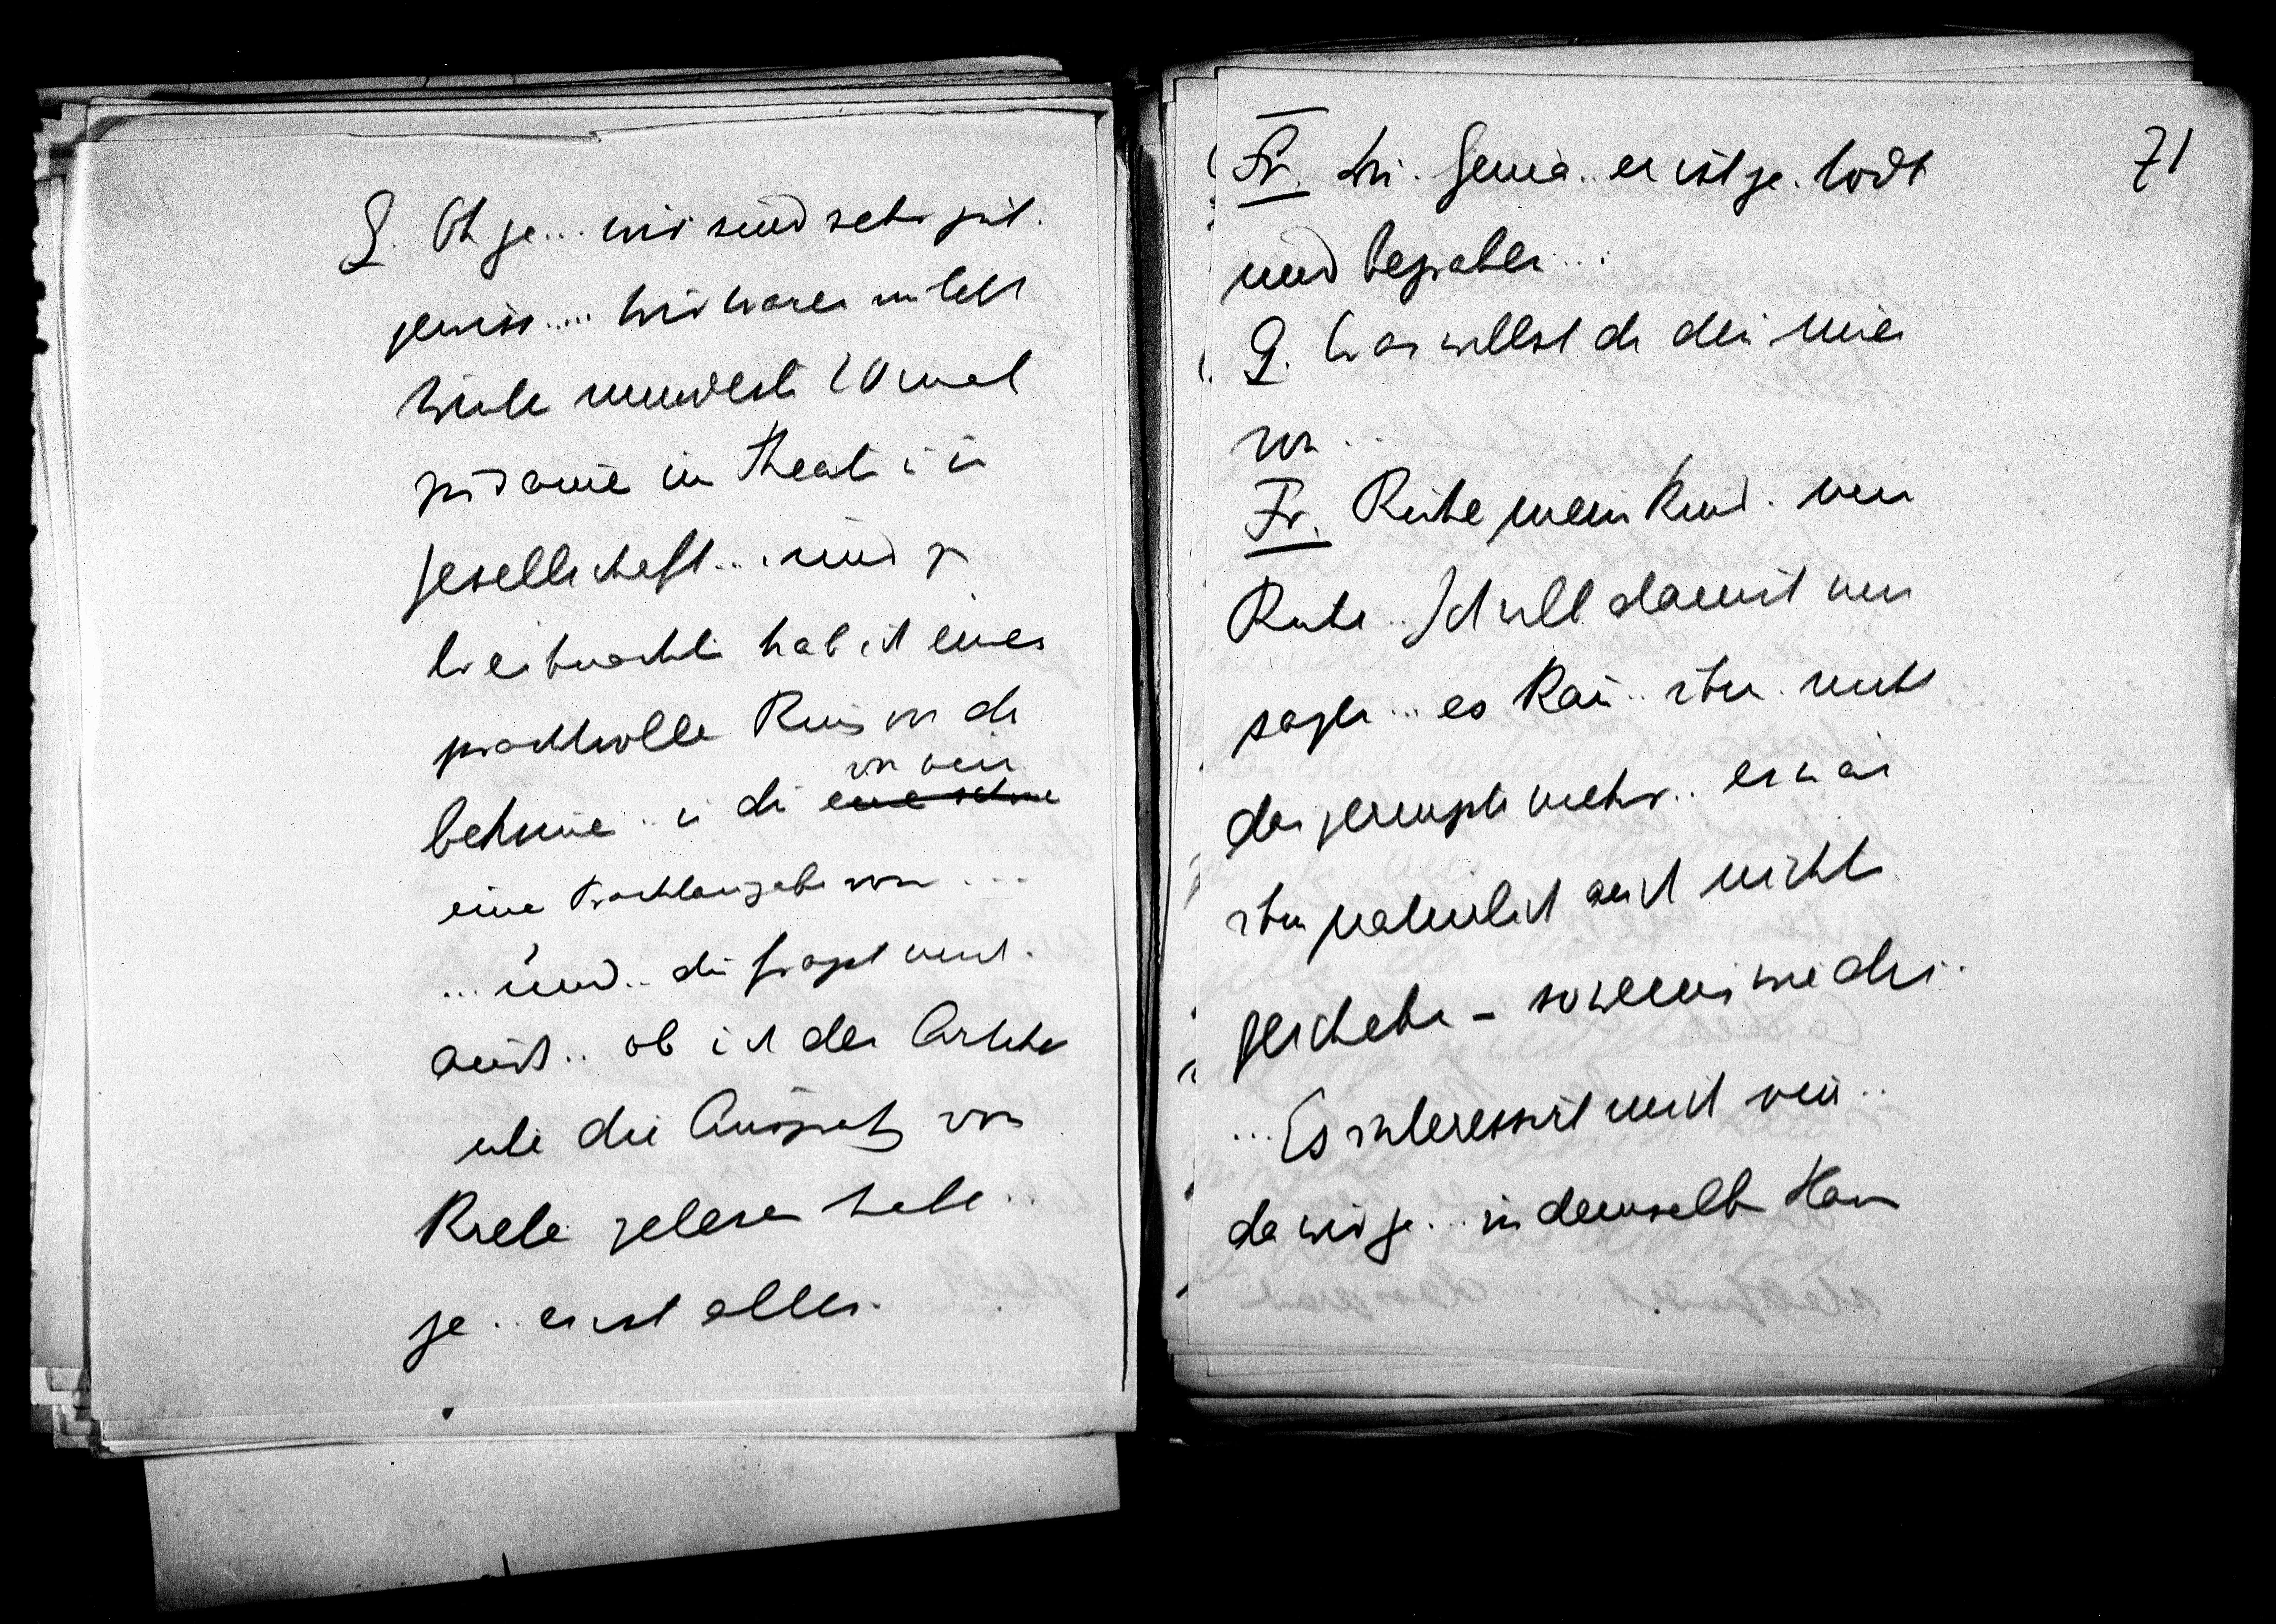 G. Oh ja... wir sind sehr gut.
gewiss..... wir waren im letzt
Winter mindest 10 mal
zusamen im Theater i in
Gesellschaft... und zu
Weihnachten hab ich einen
prachtvollen Ring von dir
bekomen.. u du
von ein
eine schöne
eine Prachtausgabe von ...
... und.. du fragst mich.
auch.. ob ich den Artikel
über die Ausgrab von
Kreta gelesen habe..
ja.. es ist alles.
71
Fr. Sieh. Genia. er ist ja. todt
und begraben...
G. Was willst du den mir
von..
Fr. Ruhe mein Kind. nur
Ruhe.. Ich will damit nur
sagen... es kan.. ihm nicht
das geringste mehr.. es wär
ihm natürlich auch nichts
geschehen – so wenig wie dir.
... Es interessirt mich nur..
da wir ja... in demselben Haus